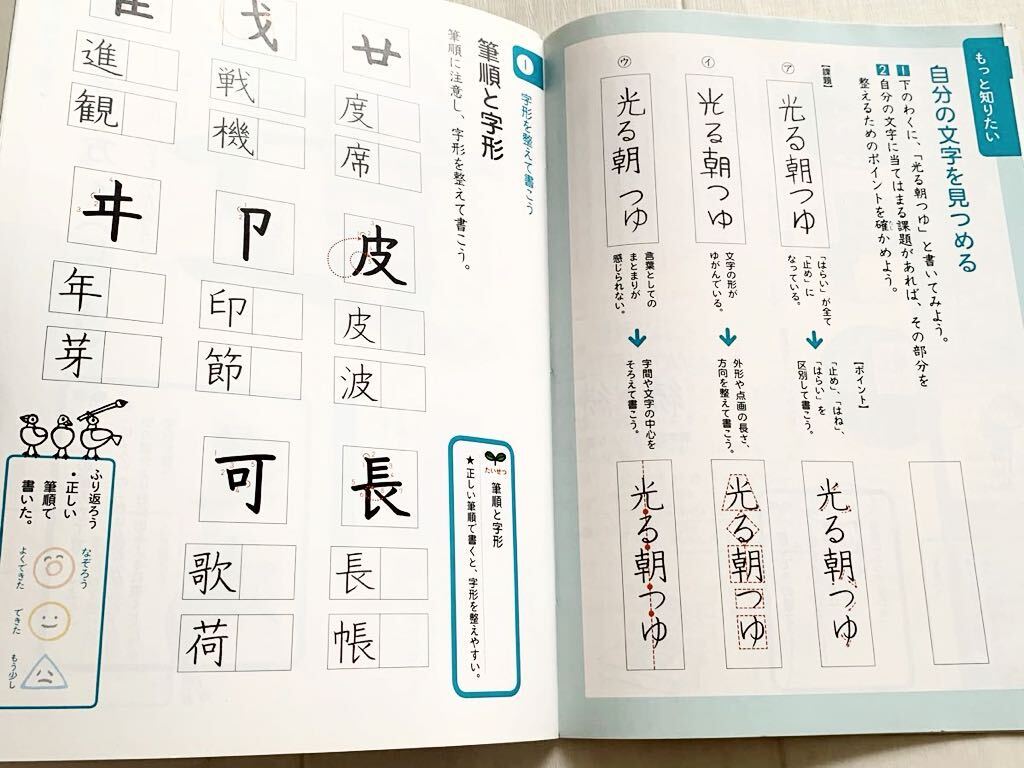 もっと知りたい
自分の文字を見つめる
1 下のわくに、「光る朝つゆ」と書いてみよう。
2 自分の文字に当てはまる課題があれば、その部分を
整えるためのポイントを確かめよう。
【課題】
ア
光る朝つゆ
「はらい」が全て
「止め」に
なっている。
【ポイント】
「止め」、「はね」、
「はらい」を
区別して書こう。
光る朝つゆ
イ
光る朝つゆ
文字の形が
ゆがんでいる。
外形や点画の長さ、
方向を整えて書こう。
光る朝つゆ
ウ
光る朝つゆ
言葉としての
まとまりが
感じられない。
字間や文字の中心を
そろえて書こう。
光る朝つゆ
1 字形を整えて書こう
筆順と字形
筆順に注意し、字形を整えて書こう。
たいせつ
筆順と字形
★正しい筆順で書くと、字形を整えやすい。
廿
度
席
皮
皮
波
長
長
帳
戈
戦
機
卩
印
節
可
歌
荷
隹
進
観
年
芽
ふり返ろう
・正しい
筆順で
書いた。
なぞろう
よくできた
できた
もう少し